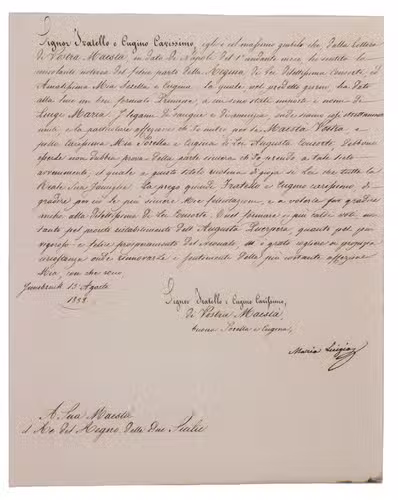 Signor Fratello e Cugino Carissimo, egli è col massimo giubilo che dalla lettera
di Vostra Maestà, in data di Napoli del 1° andante mese, ho sentito la
notizia del felice parto della Regina di Lei dilettissima Consorte, ed
Amatissima Mia Sorella e Cugina, la quale nel predetto giorno, ha dato
alla luce un ben formato Principe, a cui sono stati imposti i nomi di
Luigi Maria. I legami di sangue e di amicizia, onde siamo sì strettamente
uniti, e la particolare affezione che Io nutro per la Maestà Vostra e
pella carissima Mia Sorella e Cugina di Lei Augusta Consorte, debbono
esserle non dubbia prova della parte sincera che Io prendo a tale lieto
avvenimento, il quale a giusto titolo ricolma di gioja sì Lei che tutta la
Reale Sua Famiglia. La prego quindi, Fratello e Cugino carissimo, di
gradire per ciò le più sincere Mie felicitazioni, e a volerle far gradire
anche alla dilettissima di Lei Consorte. Col formare i più caldi voti,
pel pronto ristabilimento dell'Augusta Puerpera, quanto pel più
vigoroso e felice proseguimento del Neonato, mi è grato cogliere la propizia
circostanza onde rinnovarle i sentimenti della più costante affezione
Mia, con che sono,
Innsbruck 13 Agosto
1838
Signor Fratello e Cugino Carissimo,
di Vostra Maestà,
buona Sorella e Cugina,
Maria Luigia
A Sua Maestà
il Re del Regno delle Due Sicilie